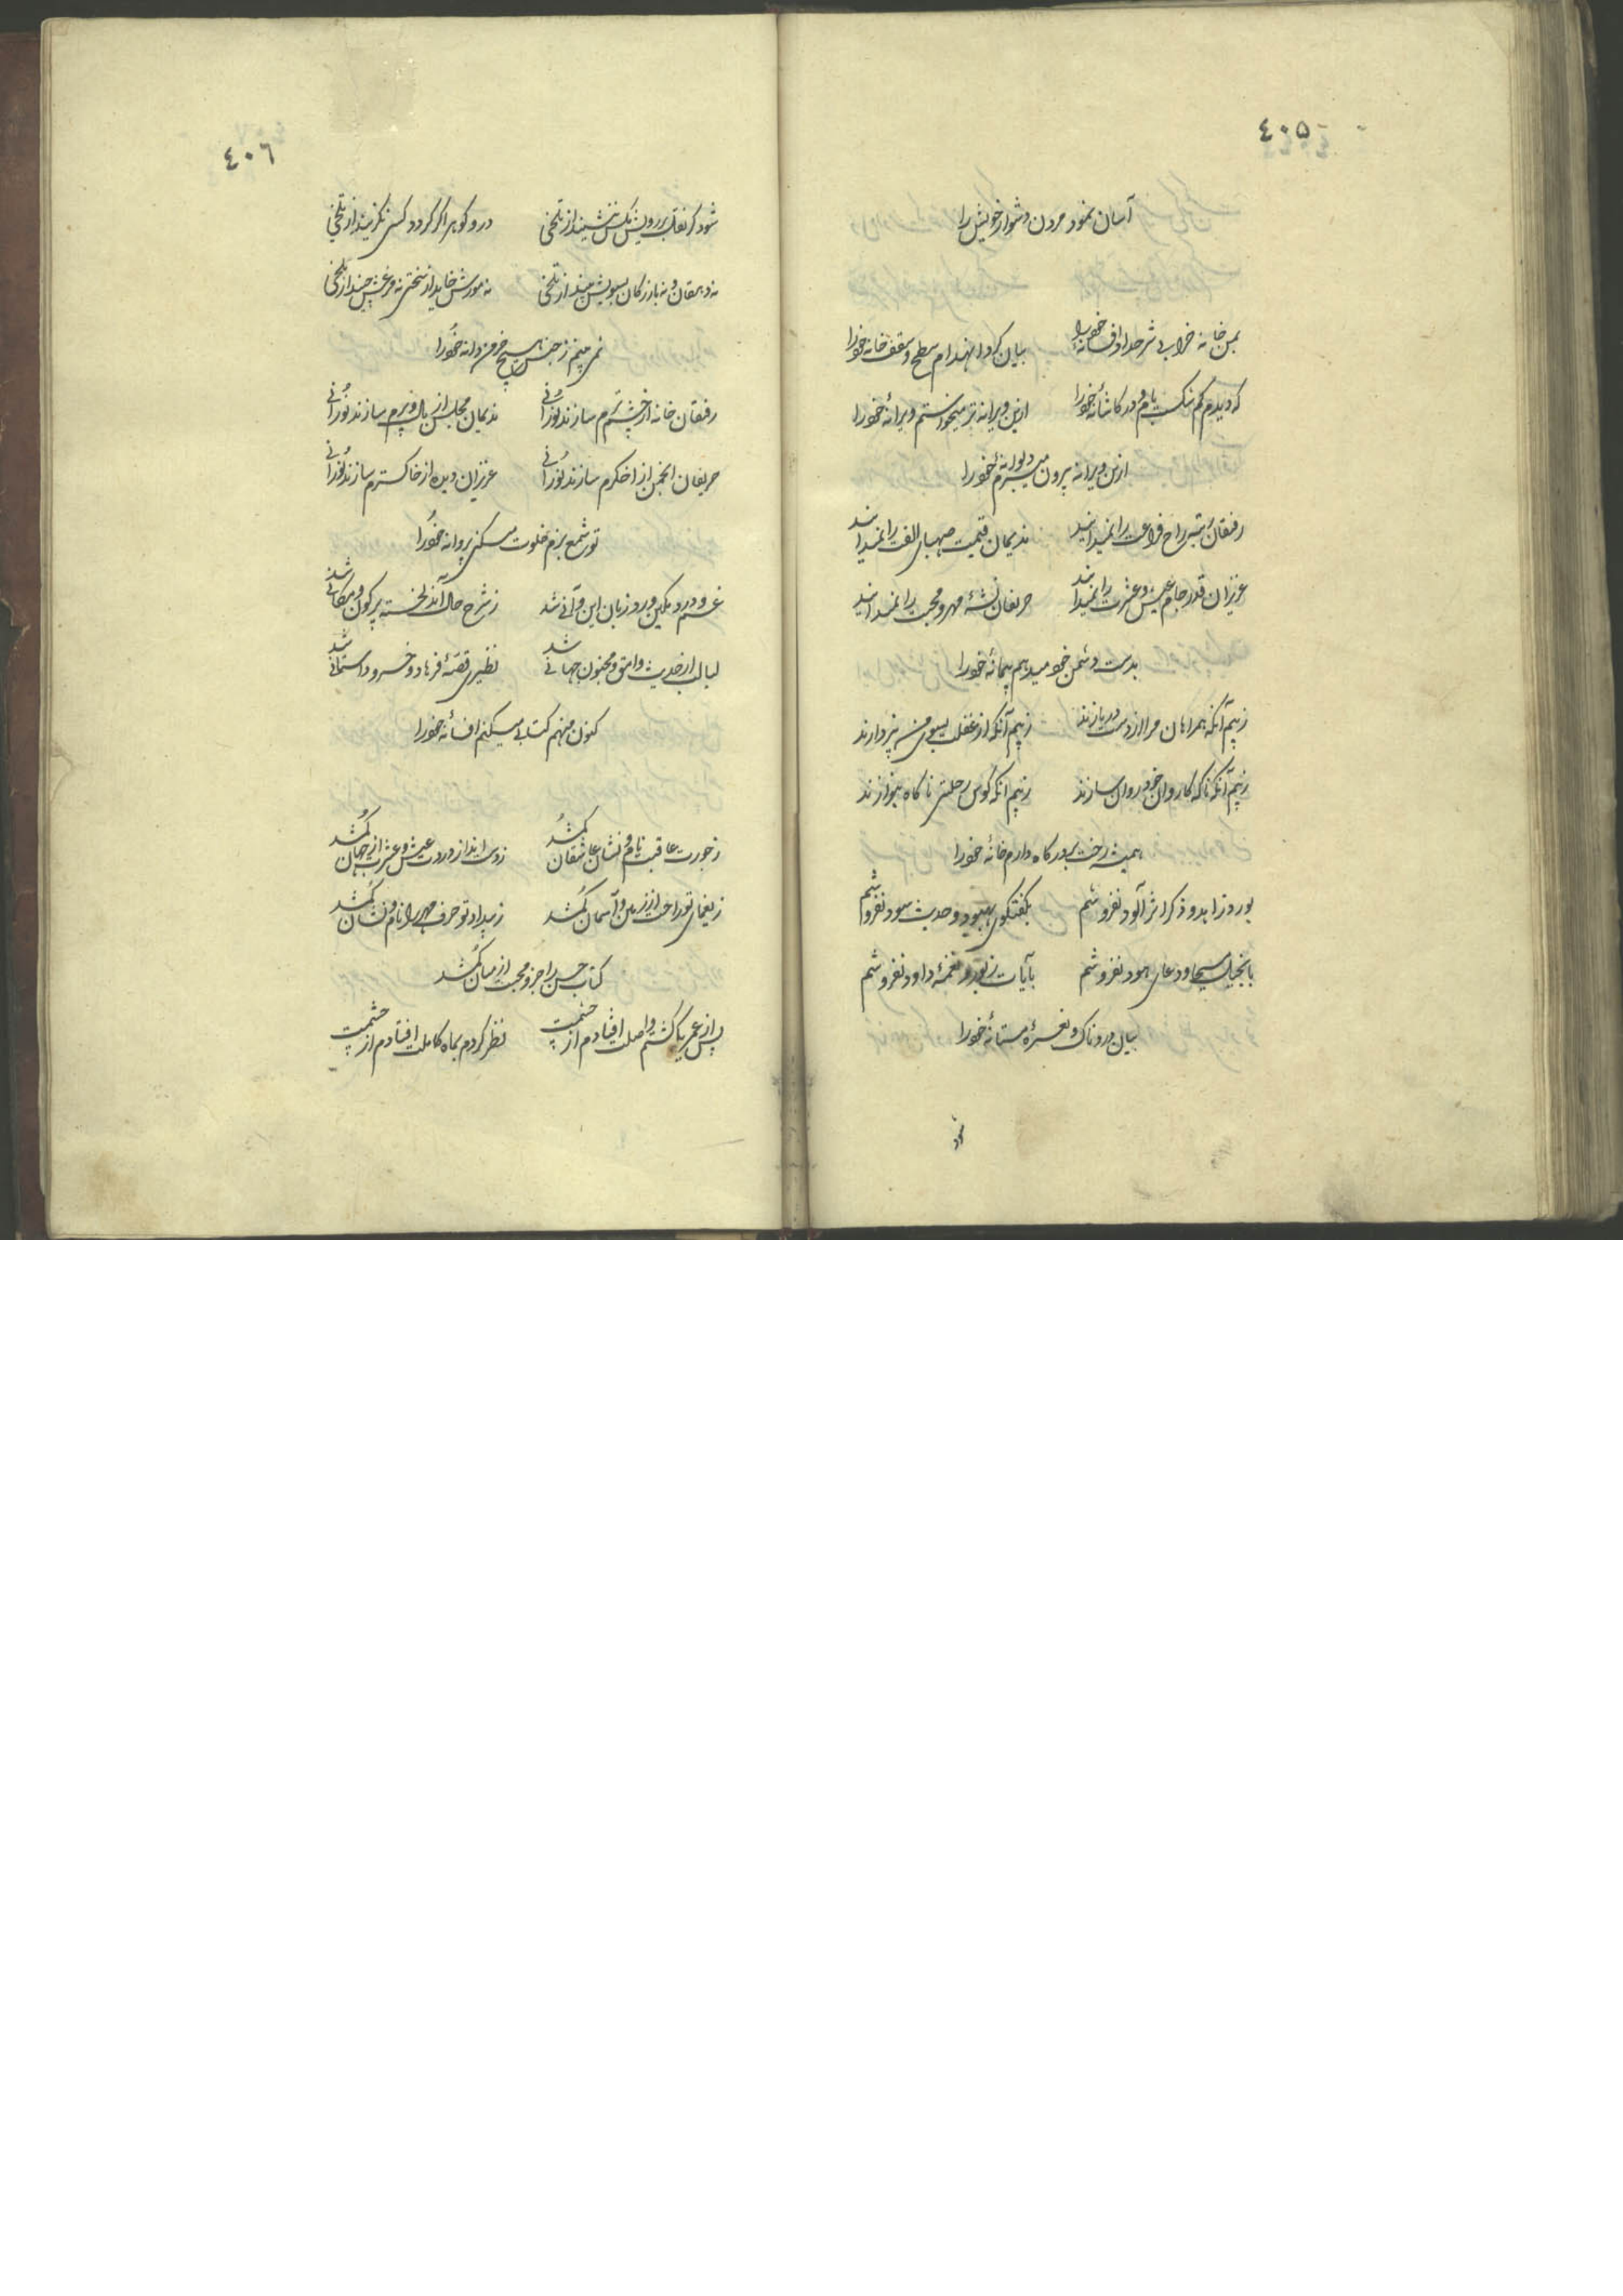 ٤٠٥
آسان نمود مردن دشوار خویش را
بمن خانه خرابی شرح داد افسانه خود را
بیان کرد انهدام سطح و سقف خانه خود را
که دیدم کم شکست بام و در کاشانه خود را
ازین ویرانه تر میخواستم ویرانه خود را
ازین ویرانه بیرون میبرم دیوانه خود را
رفیقان نشئه راح فراغت را نمیدانند
ندیمان قیمت صهبای الفت را نمیدانند
عزیزان قدر جام عیش و عشرت را نمیدانند
حریفان نشئه مهر و محبت را نمیدانند
بدست دشمن خود میدهم پیمانه خود را
ز بیم آنکه همراهان مرا از دست در بازند
ز بیم آنکه از غفلت بسوی من نپردازند
ز بیم آنکه ناگه کاروان خود روان سازند
ز بیم آنکه کوس رحلتی ناگاه بنوازند
همیشه رخت بر درگاه دارم خانه خود را
بورد زاهد و ذکر اثر آلود نفروشم
بگفتگوی بهبود و حدیث سود نفروشم
بانجیل مسیحا و دعای هود نفروشم
بآیات زبور و نغمه داود نفروشم
بیان دردناک و نعره مستانه خود را
٤٠٦
شود گر نقل بر رویش مگس ننشیند از تلخی
در و گوهر اگر گردد کسی نگزیند از تلخی
نه دهقان و نه بازرگان بسویش بیند از تلخی
نه مورش خاید از سختی نه مرغش چیند از تلخی
نمی بینم ز جنس هیچ خرمن دانه خود را
رفیقان خانه از چشم ترم سازند نورانی
ندیمان مجلس از بال و پرم سازند نورانی
حریفان انجمن از اخگرم سازند نورانی
عزیزان دیده از خاکسترم سازند نورانی
تو شمع بزم خلوت میکنی پروانه خود را
غم و درد ملکین ورد زبان این و آنی شد
ز شرح حال آن دلخسته پر کون و مکانی شد
لبالب از حدیث وامق و مجنون جهانی شد
نظیری قصه فرهاد و خسرو داستانی شد
کنون منهم کتابی میکنم افسانه خود را
ز جورت عاقبت نام و نشان عاشقان گم شد
ز دست انداز دردت عیش و عشرت از جهان گم شد
ز یغمای تو راحت از زمین و آسمان گم شد
ز بیداد تو حرف مهر را نام و نشان گم شد
کتاب حسن را جزو محبت از میان گم شد
پس از عمری که گشتم واصلت افتادم از چشمت
نظر کردم بماه کاملت افتادم از چشمت